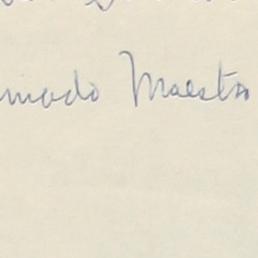 modo Maestro